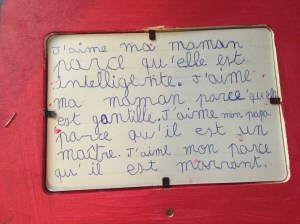 J'aime ma maman
parce qu'elle est
intelligente. J'aime
ma maman parce qu'elle
est gantille. J'aime mon papa
parce qu'il est un
maître. J'aime mon parce
qu'il est marrant.